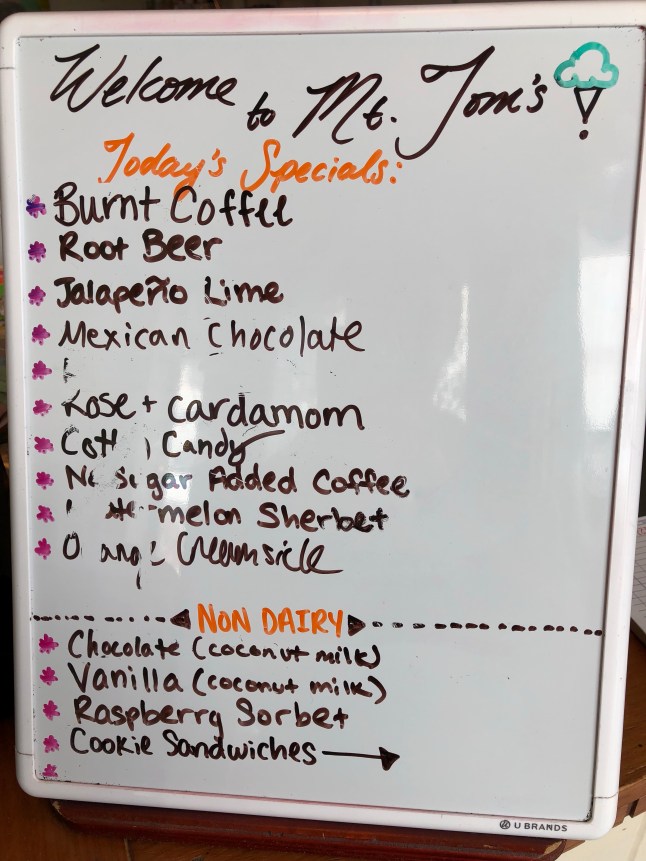 Welcome to Mt. Tom's
Today's Specials:
Burnt Coffee
Root Beer
Jalapeño Lime
Mexican Chocolate
Rose + Cardamom
Cotton Candy
No Sugar Added Coffee
melon Sherbet
Orange Creamsicle
NON DAIRY
Chocolate (coconut milk)
Vanilla (coconut milk)
Raspberry Sorbet
Cookie Sandwiches
U BRANDS